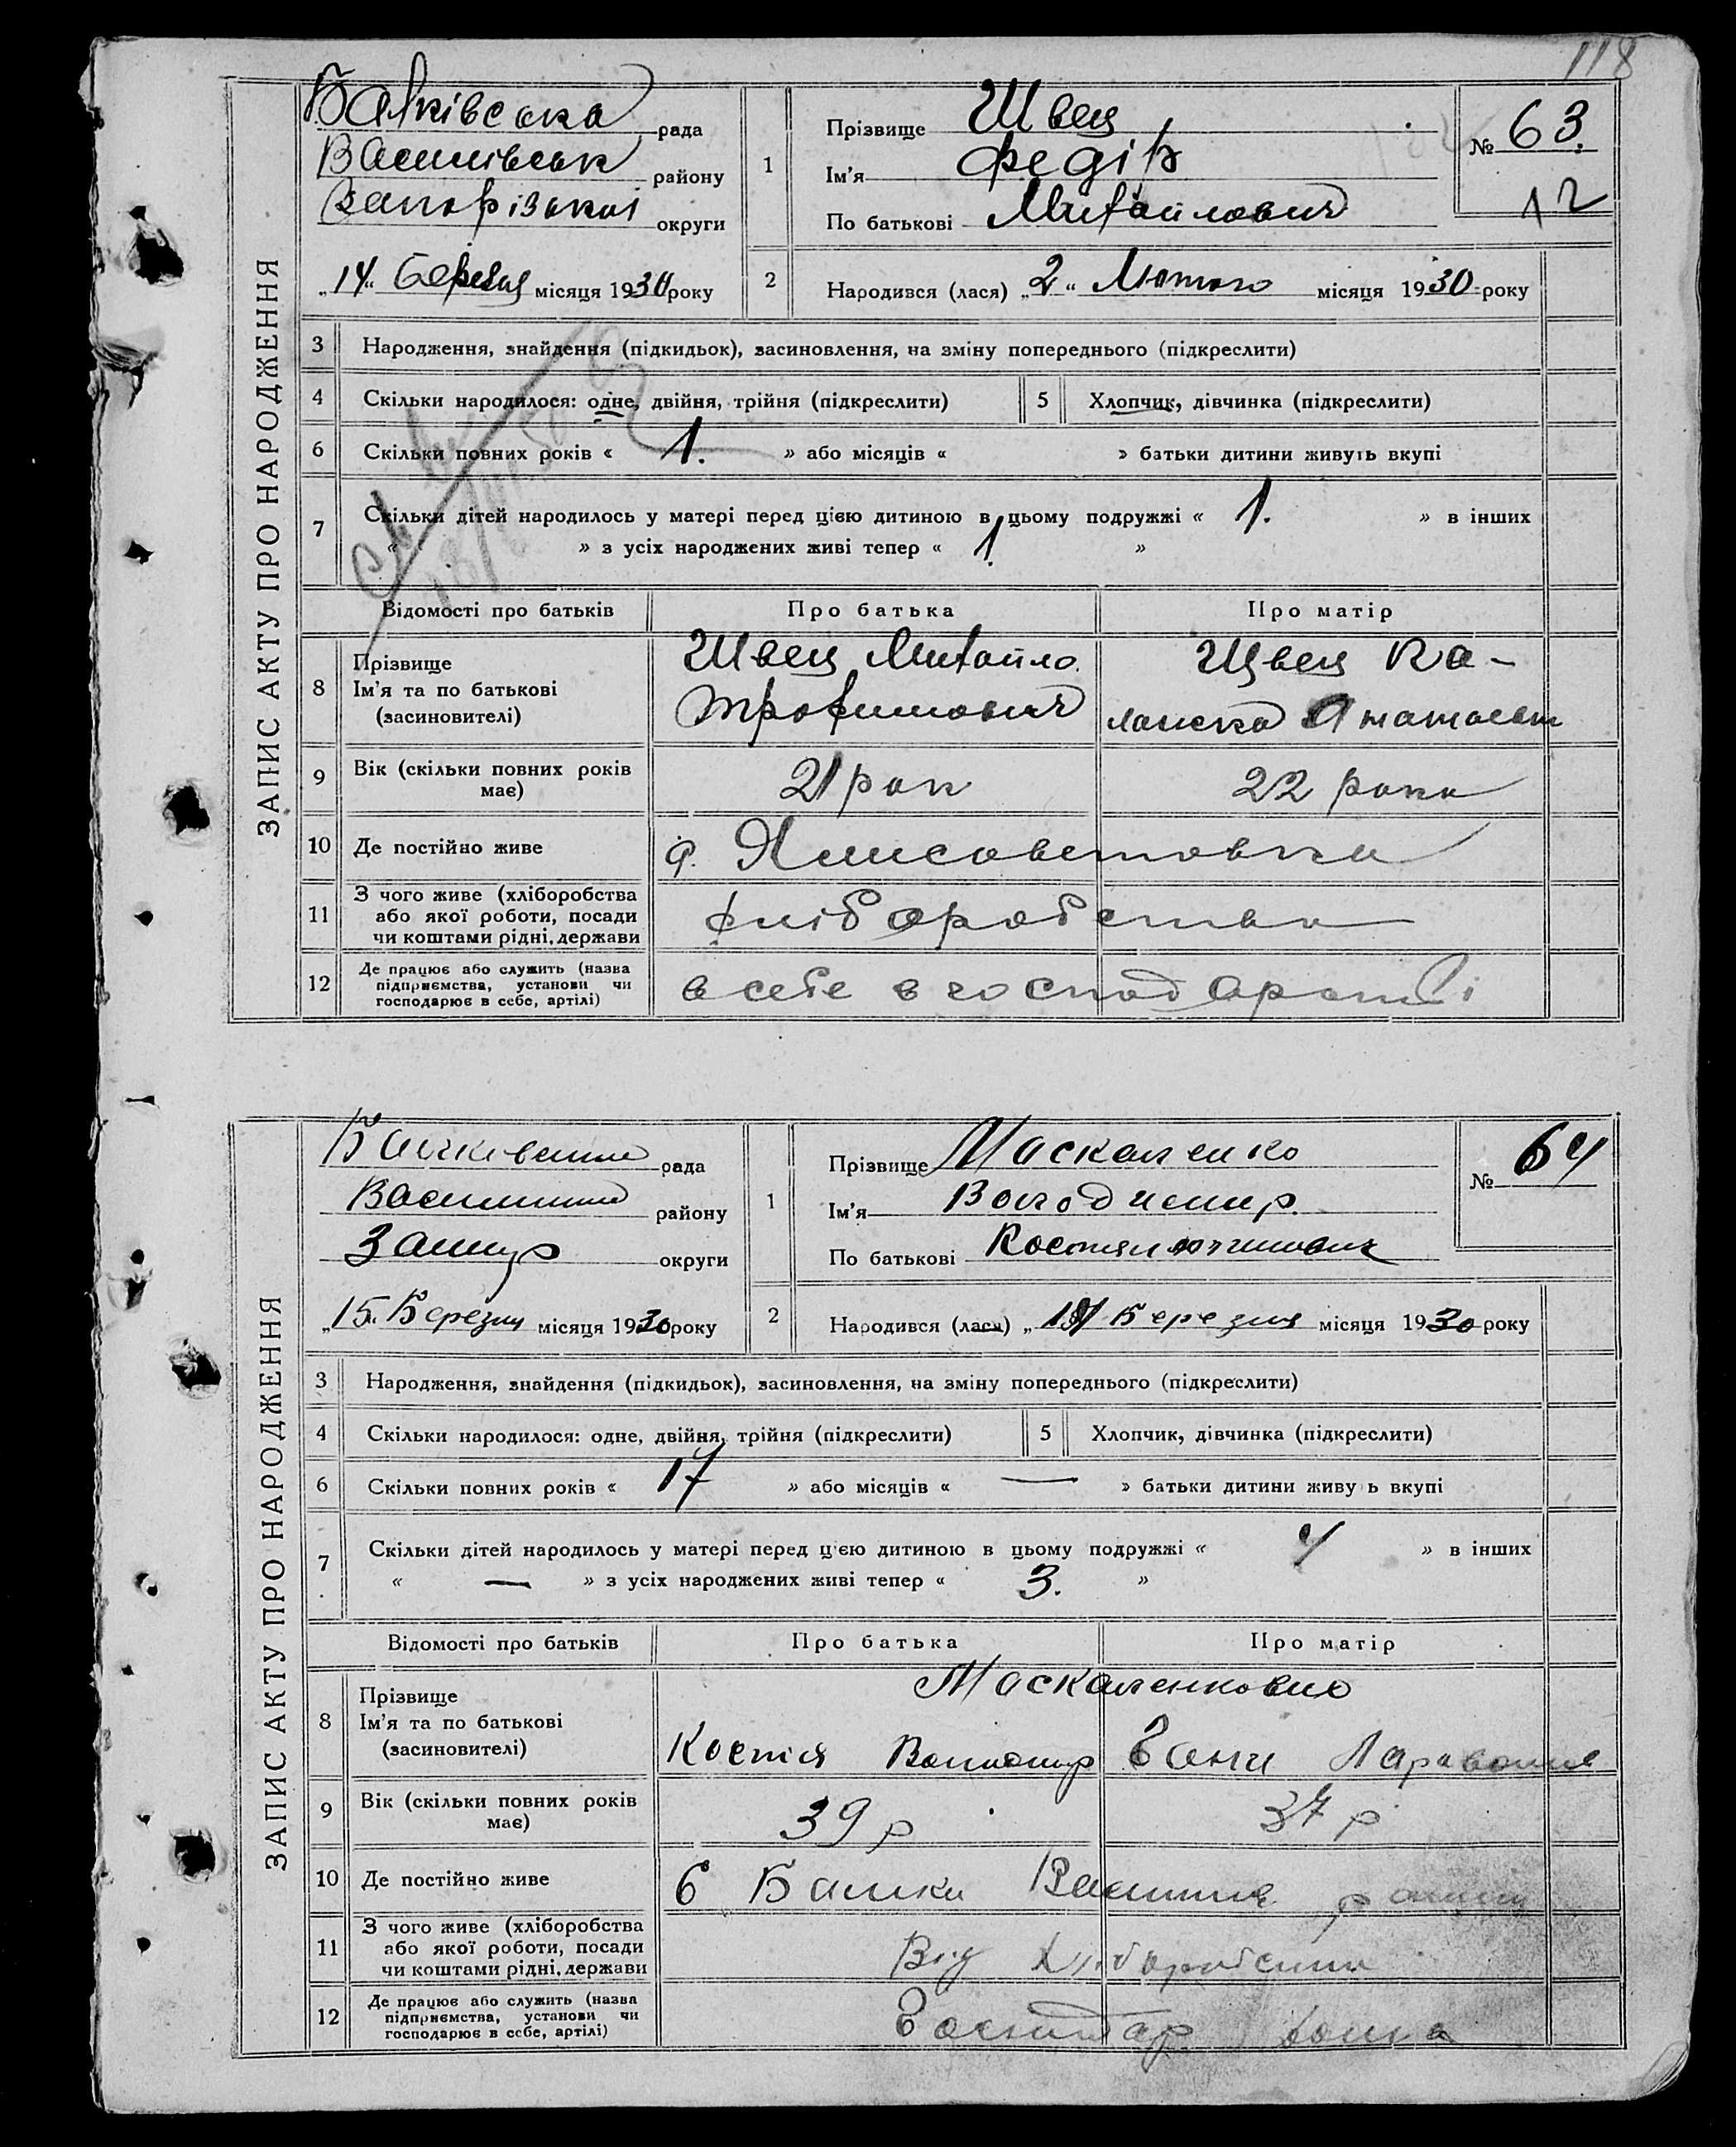 118
ЗАПИС АКТУ ПРО НАРОДЖЕННЯ
Балківська рада
Василівськ району
Запорізької округи
„14“ березня місяця 1930 року
1
Прізвище Швец
Ім'я Федір
По батькові Михайлович
№ 63.
12
2
Народився (лася) „2“ Лютого місяця 1930 року
3 Народження, знайдення (підкидьок), засиновлення, на зміну попереднього (підкреслити)
4 Скільки народилося: одне, двійня, трійня (підкреслити) 5 Хлопчик, дівчинка (підкреслити)
6 Скільки повних років « 1. » або місяців « » батьки дитини живуть вкупі
7 Скільки дітей народилось у матері перед цією дитиною в цьому подружжі « 1. » в інших
« » з усіх народжених живі тепер « 1. »
Відомості про батьків Про батька Про матір
8 Прізвище
Ім'я та по батькові
(засиновителі)
Швец Михайло
Трофимович
Швец Ка-
9 Вік (скільки повних років
має)
21 рок 22 роки
10 Де постійно живе
11 З чого живе (хліборобства
або якої роботи, посади
чи коштами рідні, держави
хліборобство
12 Де працює або служить (назва
підприємства, установи чи
господарює в себе, артілі)
в себе в господарстві
ЗАПИС АКТУ ПРО НАРОДЖЕННЯ
рада
району
округи
„15“ Березня місяця 1930 року
1
Прізвище Маскаленко
Ім'я Володимир
По батькові
№ 64
2
Народився (лася) „ Березня місяця 1930 року
3 Народження, знайдення (підкидьок), засиновлення, на зміну попереднього (підкреслити)
4 Скільки народилося: одне, двійня, трійня (підкреслити) 5 Хлопчик, дівчинка (підкреслити)
6 Скільки повних років « 17 » або місяців « — » батьки дитини живуть вкупі
7 Скільки дітей народилось у матері перед цією дитиною в цьому подружжі « 4 » в інших
« — » з усіх народжених живі тепер « 3. »
Відомості про батьків Про батька Про матір
8 Прізвище
Ім'я та по батькові
(засиновителі)
9 Вік (скільки повних років
має)
39 р 37 р
10 Де постійно живе
С Балки
11 З чого живе (хліборобства
або якої роботи, посади
чи коштами рідні, держави
Від
12 Де працює або служить (назва
підприємства, установи чи
господарює в себе, артілі)